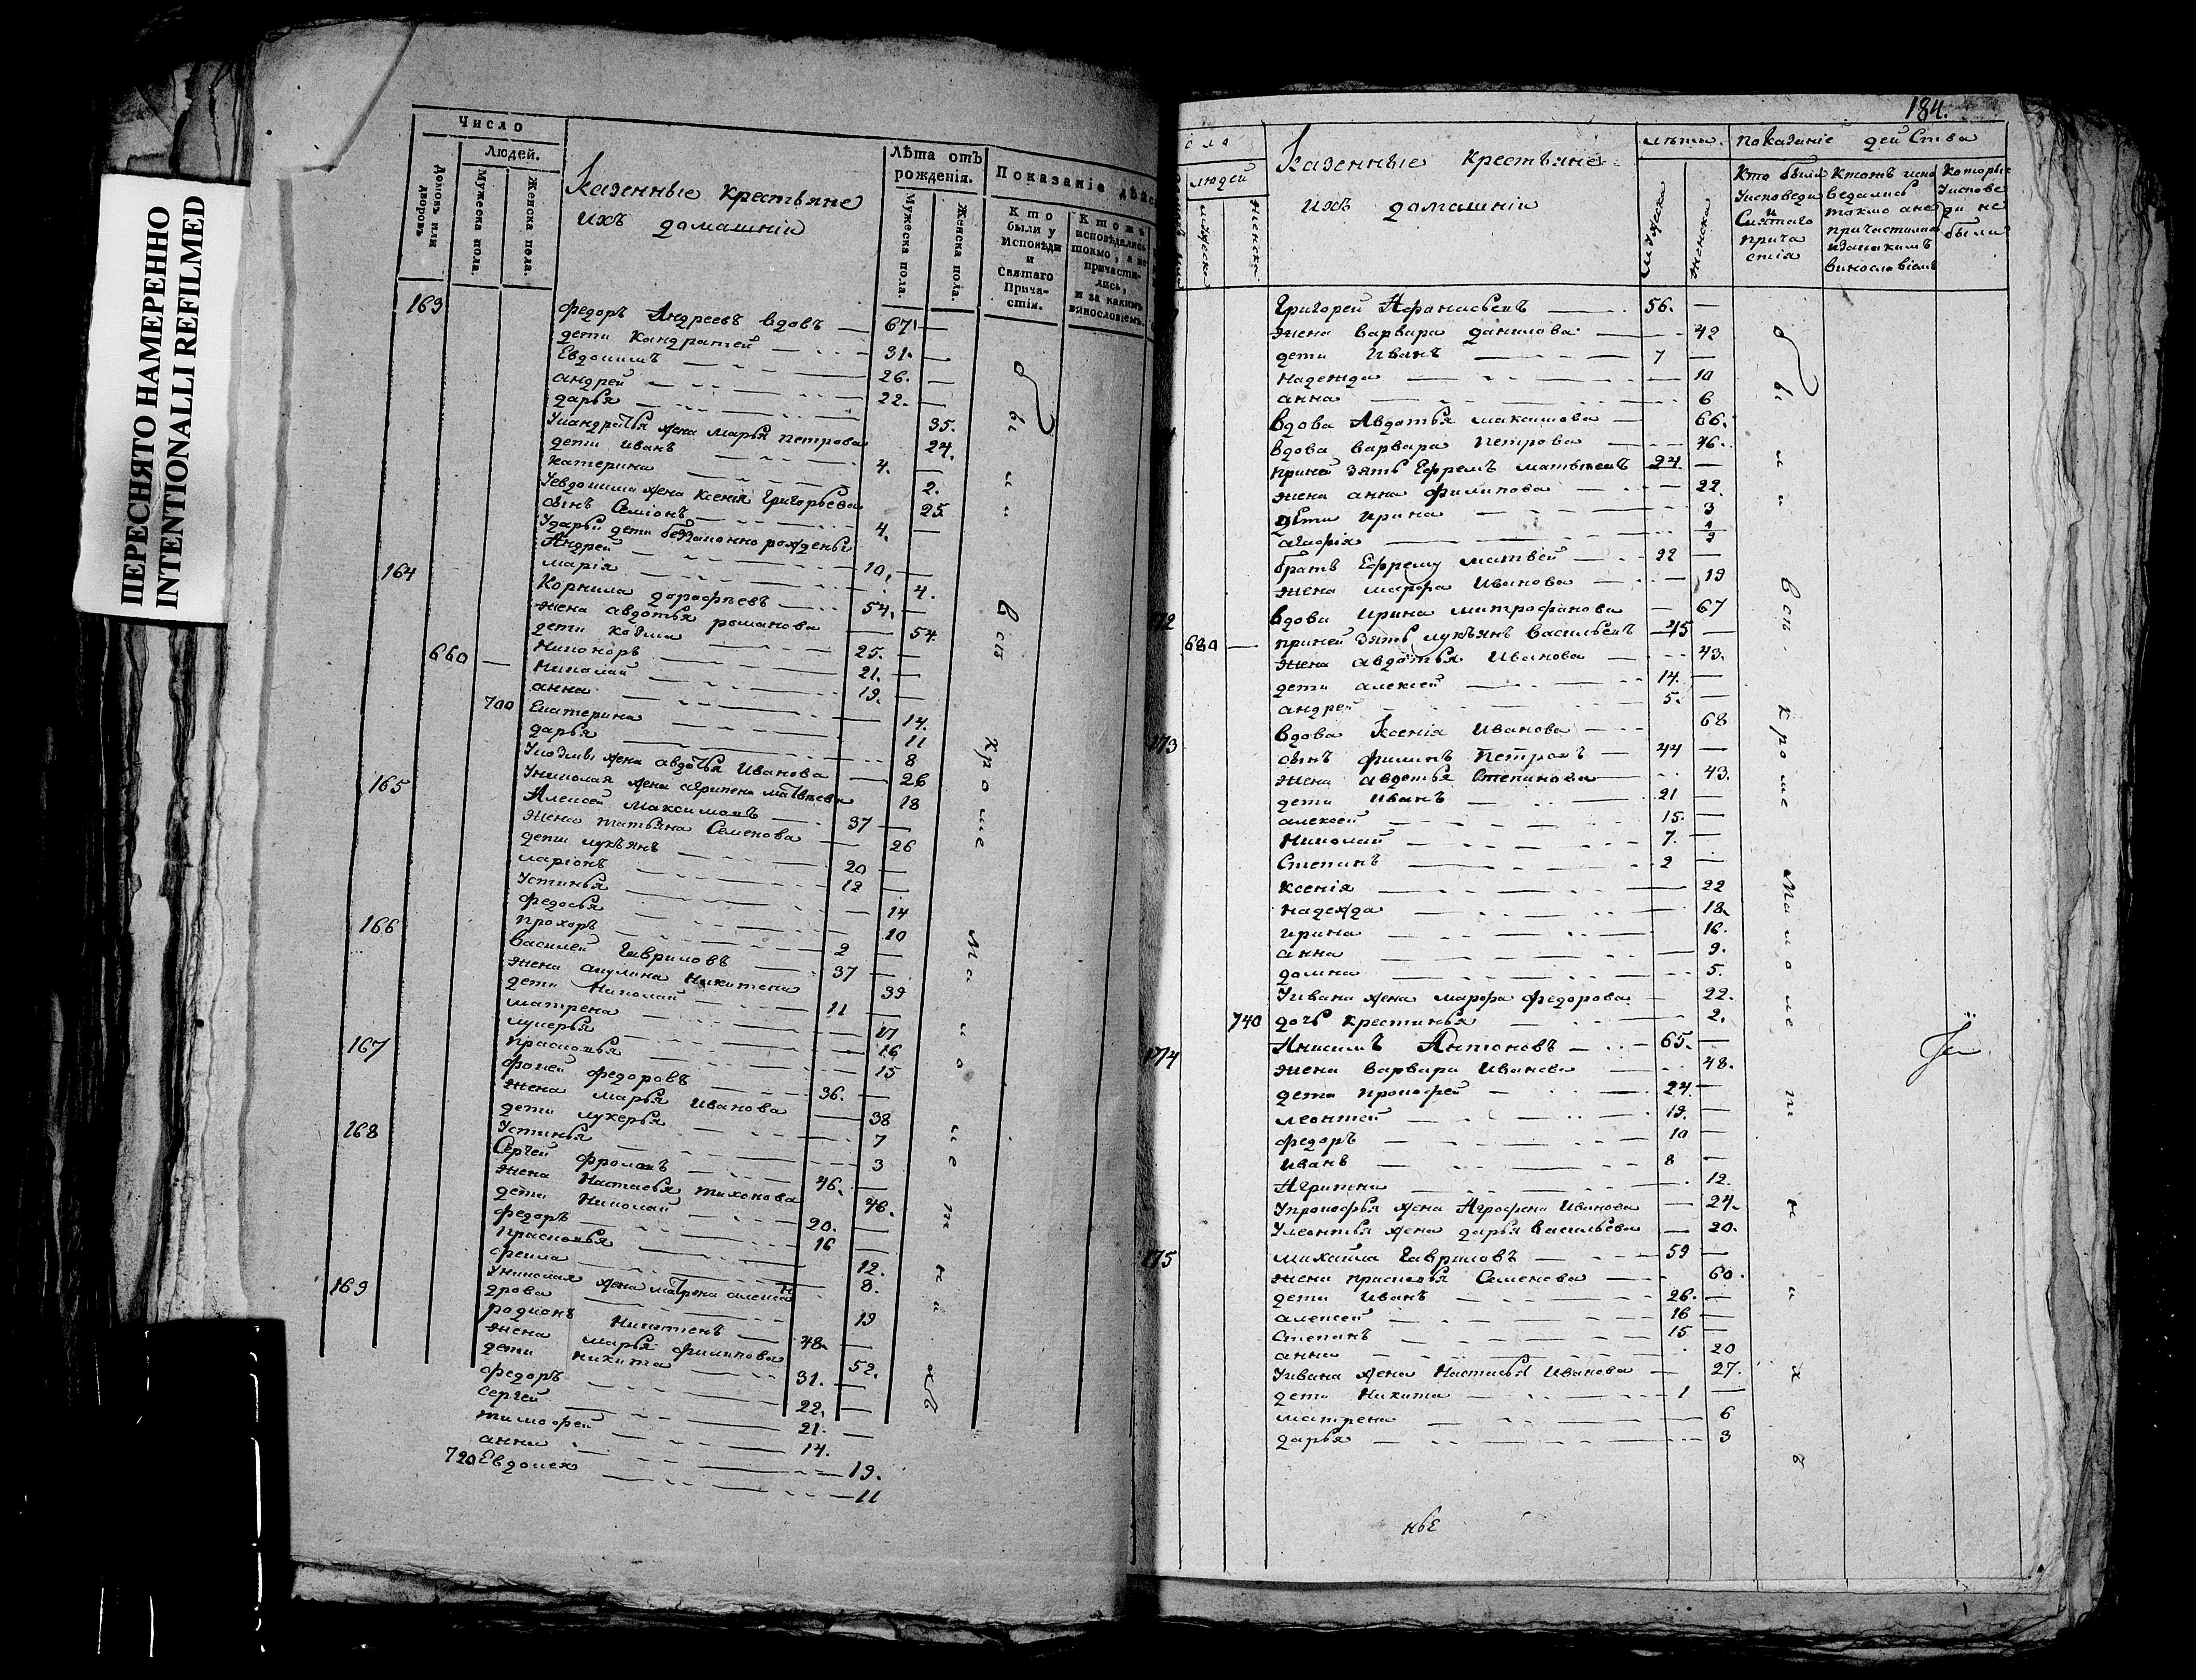 ПЕРЕСНЯТО НАМЕРЕННО
INTENTIONALLI REFILMED
Число
Людей.
Домовъ или дворовъ
Мужеска пола.
Женска пола.
Казенные крестьяне
ихъ домашнии
Лѣта отъ рожденія.
Мужеска пола.
Женска пола.
Показаніе дѣйс
Кто были у Исповѣди и Святаго Причастія.
Ктожъ исповѣдались токмо, а не причастились, и за какимъ винословіемъ.
163 Федоръ Андреевъ вдовъ — 67 —
дети Кандратей — 31. —
Евдокимъ — 26. —
андрей — 22. —
дарья — 35.
Укандратья жена Марья петрова 24.
дети иванъ — 4. —
катерина — 2.
Уевдокима жена Ксения Григорьева 25
сынъ Семіонъ — 4. —
Ударьи дети беззаконно рожденыи
Андрей — 10. —
марія — 4.
164 Корнила дорофѣевъ — 54. —
жена авдотья романова — 54.
дети козма — 25. —
Никоноръ — 21. —
660 — Николай — 19. —
анна — 14.
700 Екатерина — 11
дарья — 8
Укозмы жена авдотья Иванова — 26
Униколая жена агрипена матвеева 18
165 Алексей максимовъ — 37 —
жена татьяна Семенова — 26
дети лукьянъ — 20 —
ларіонъ — 12 —
Устинья — 14
федосья — 10
прохоръ — 2 —
166 Василей Гавриловъ — 37 —
жена акулина Никитена 39
дети Николай — 11 —
матрена — 17
лукерья — 16
прасковья — 15
167 фокей федоровъ — 36. —
жена марья Иванова — 38
дети лукерья — 7
Устинья — 3
168 Сергей фроловъ — 46. —
жена Настасья тихонова 46.
дети Николай — 20. —
федоръ — 16 —
прасковья — 12.
фекла — 8.
Униколая жена матрена алекса
дрова — 19
169 родионъ Никитенъ — 48. —
жена марья филипова — 52.
дети никита — 31. —
федоръ — 22. —
Сергей — 21. —
тимофей — 14.
анна — 19.
720 Евдокея — 11
Были вси кроме малолетнихъ
184.
людей
мужска
женска
Казенные крестьяне
ихъ домашнии
лѣта.
мужеска
женска
показаніе действа
Кто были Уисповеди и Святаго причастія
Ктожъ испо ведались токмо ане причастились изакакимъ винословіемъ
Которые Уиспове ди не были
Григорей Афанасьевъ — 56. —
жена варвара данилова — 42
дети Иванъ — 7 —
надежда — 10
анна — 6
вдова Авдотья максимова — 66.
вдова варвара петрова — 46.
приней зять Ефремъ матвеевъ 24 —
жена анна филипова — 22.
дети ирина — 3
агафія — ½
братъ Ефрему матвѣй — 22 —
жена марфа Иванова — 19
172 вдова ирина митрофанова — 67
680 — приней зять лукьянъ васильевъ 45 —
жена авдотья Иванова — 43.
дети алексей — 14. —
андрей — 5. —
173 вдова Ксенія Иванова — 68
сынъ филипъ петровъ — 44 —
жена авдотья Степанова — 43.
дети Иванъ — 21 —
алексей — 15. —
Николай — 7. —
Степанъ — 2 —
Ксенія — 22
надежда — 18.
ирина — 16.
анна — 9.
домна — 5.
Уивана жена марфа федорова — 22.
740 дочь крестинья — 2.
174 Анисимъ Антоновъ — 65. —
жена варвара Иванова — 48.
дети прокофей — 24. —
леонтей — 19. —
федоръ — 10 —
Иванъ — 8 —
Агрипена — 12.
Упрокофья жена Аграфена Иванова — 24.
Улеонтья жена дарья васильева — 20.
175 михайла Гавриловъ — 59 —
жена прасковья Семенова — 60.
дети Иванъ — 26. —
алексей — 16 —
Степанъ — 15 —
анна — 20
Уивана жена Настасья Иванова — 27.
дети Никита — 1 —
матрена — 6
дарья — 3
Были вси кроме малолетнихъ